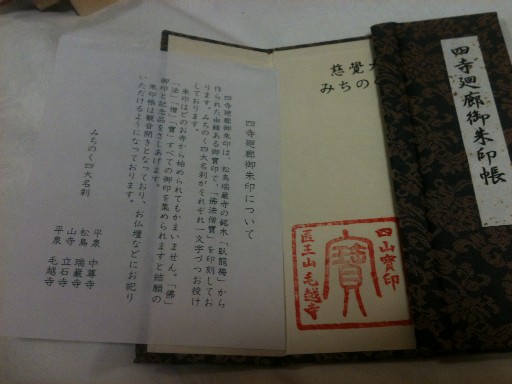 四寺廻廊御朱印帳
慈覺大
みちのく
四山寶印
寶
医王山毛越寺
四寺廻廊御朱印について
四寺廻廊御朱印は、松島瑞巌寺の銘木「臥龍梅」から
作られた由緒ある御寶印で、「佛法僧寶」を印刻してお
ります。みちのく四大名刹がそれぞれ一文字づつお授け
しております。
朱印はどのお寺から始められてもかまいません。「佛」
「法」「僧」「寶」すべての御印を集められますと結願の
御印と記念品をさしあげます。
朱印帳は観音開きとなっており、お仏壇などにお祀り
いただけるようになっております。
みちのく四大名刹
平泉 中尊寺
松島 瑞巌寺
山寺 立石寺
平泉 毛越寺